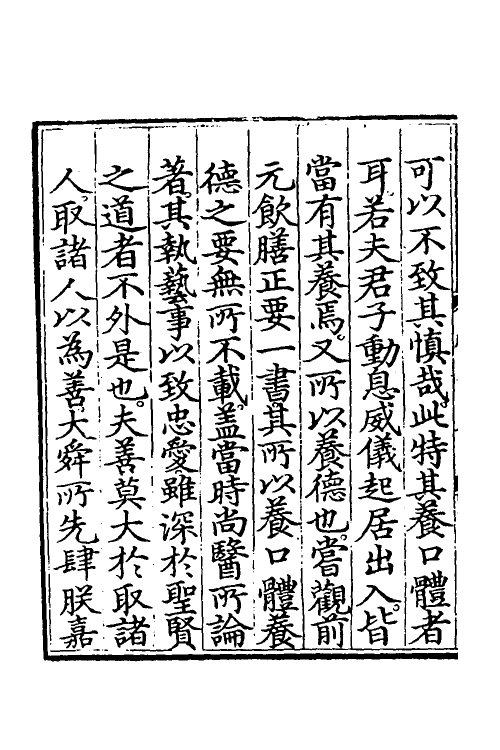 可以不致其慎哉。此特其養口體者
耳。若夫君子動息威儀起居出入。皆
當有其養焉。又所以養德也。嘗觀前
元飲膳正要一書。其所以養口體養
德之要無所不載。蓋當時尚醫所論
著。其執藝事以致忠愛。雖深於聖賢
之道者不外是也。夫善莫大於取諸
人。取諸人以為善。大舜所先。肆朕嘉